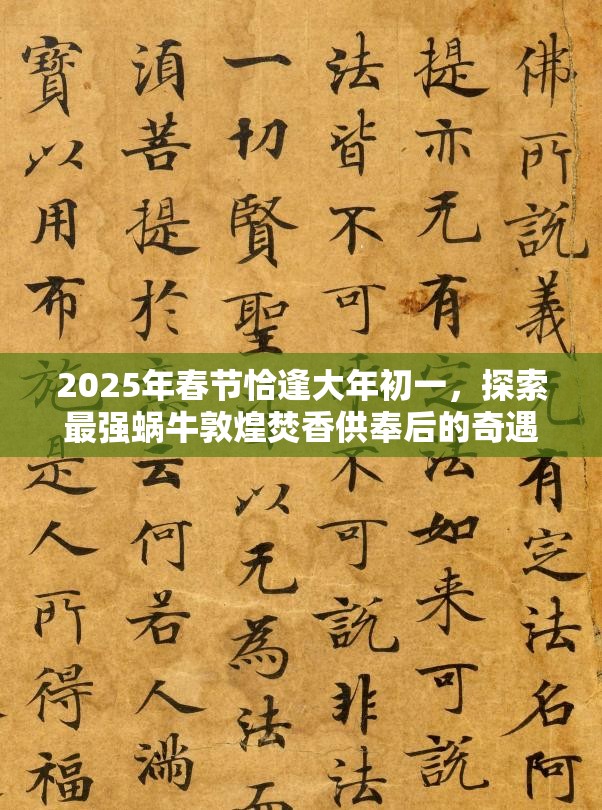 佛所説義有定法名阿
提亦无有法如来可説
法皆不可不可説非法
一切賢聖以无為法而
湏菩提於云何若人滿
寶以用布施是人所得福
2025年春节恰逢大年初一，探索
最强蜗牛敦煌焚香供奉后的奇遇